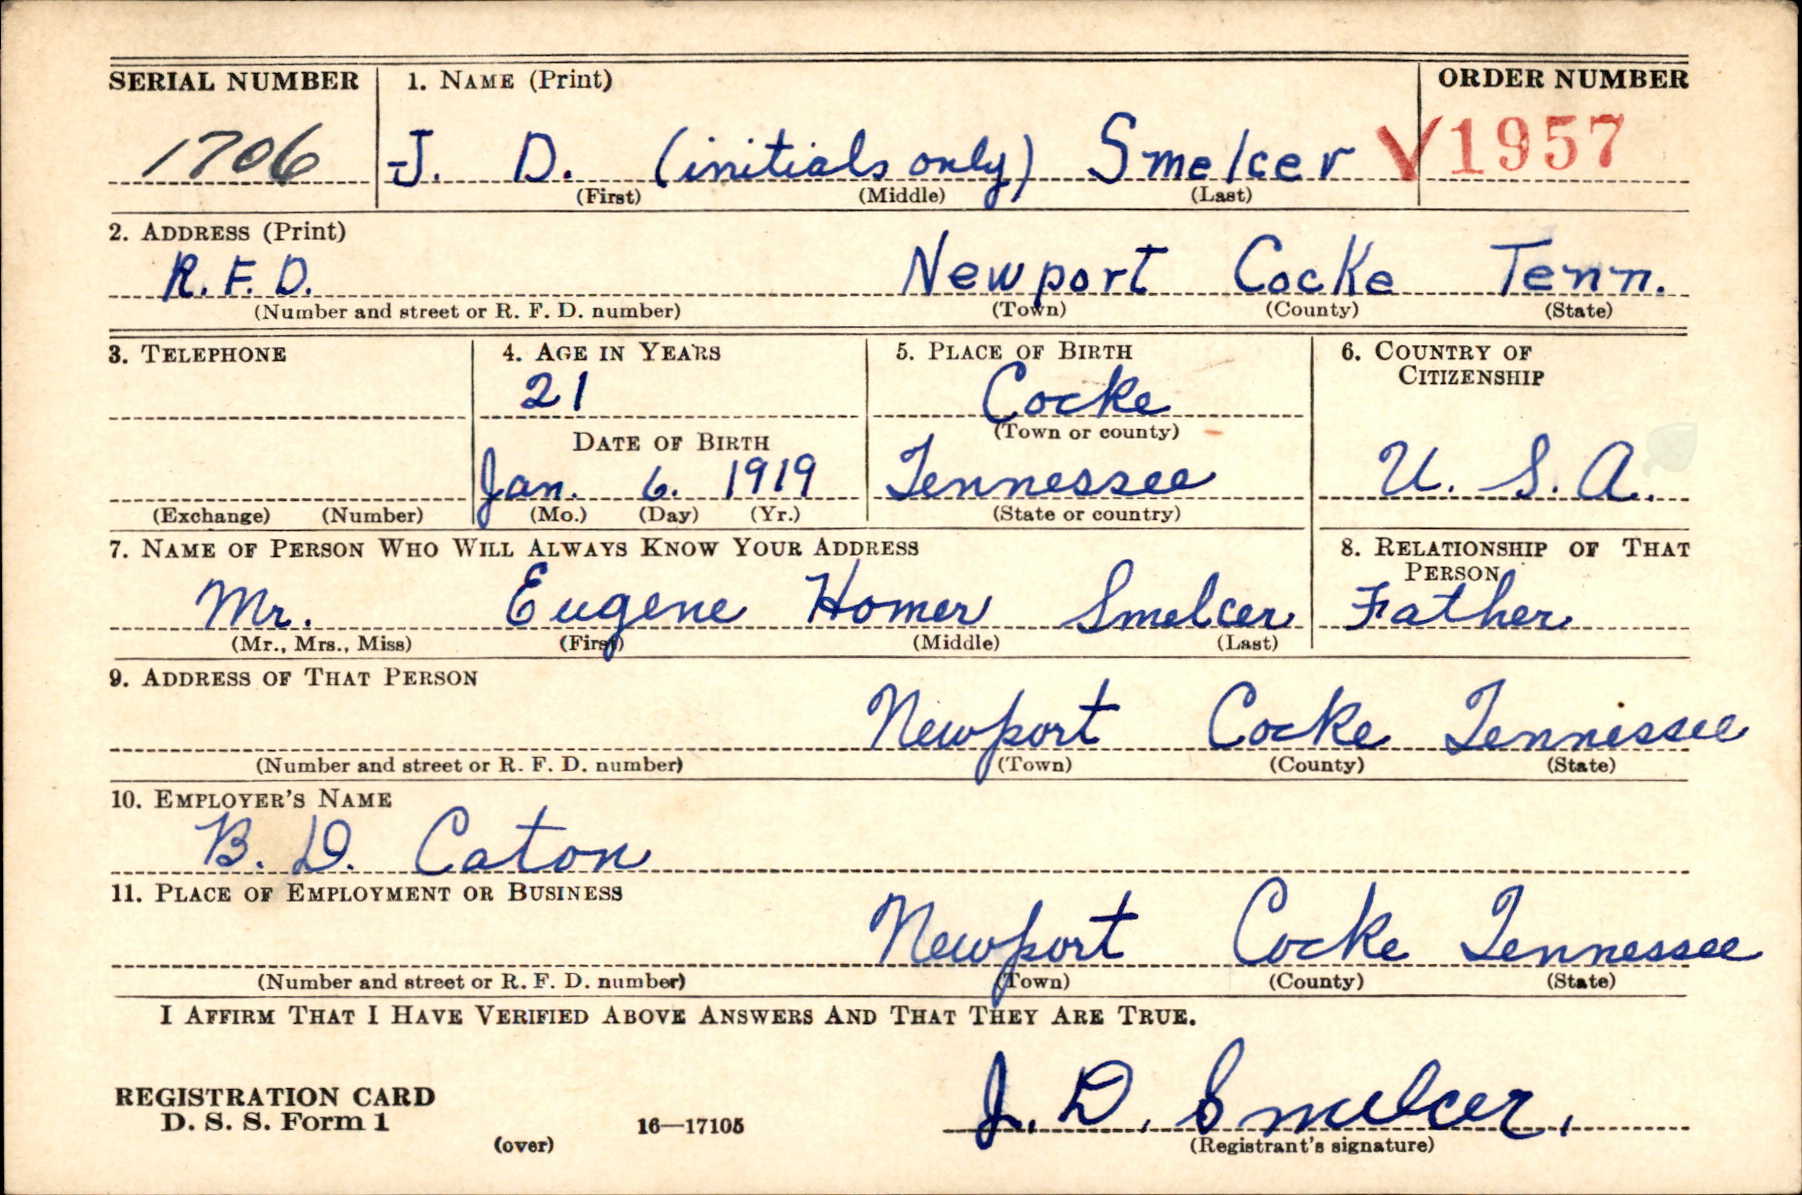 SERIAL NUMBER 1. NAME (Print) ORDER NUMBER
1706 J. D. (initials only) Smelcer 1957
(First) (Middle) (Last)
2. ADDRESS (Print)
R.F.D. Newport Cocke Tenn.
(Number and street or R. F. D. number) (Town) (County) (State)
3. TELEPHONE 4. AGE IN YEARS 5. PLACE OF BIRTH 6. COUNTRY OF CITIZENSHIP
21 Cocke
(Town or county)
DATE OF BIRTH
Jan. 6. 1919 Tennessee U. S. A.
(Exchange) (Number) (Mo.) (Day) (Yr.) (State or country)
7. NAME OF PERSON WHO WILL ALWAYS KNOW YOUR ADDRESS 8. RELATIONSHIP OF THAT PERSON
Mr. Eugene Homer Smelcer Father
(Mr., Mrs., Miss) (First) (Middle) (Last)
9. ADDRESS OF THAT PERSON
Newport Cocke Tennessee
(Number and street or R. F. D. number) (Town) (County) (State)
10. EMPLOYER'S NAME
B. D. Caton
11. PLACE OF EMPLOYMENT OR BUSINESS
Newport Cocke Tennessee
(Number and street or R. F. D. number) (Town) (County) (State)
I AFFIRM THAT I HAVE VERIFIED ABOVE ANSWERS AND THAT THEY ARE TRUE.
REGISTRATION CARD
D. S. S. Form 1 16—17105 J. D. Smelcer.
(over) (Registrant's signature)